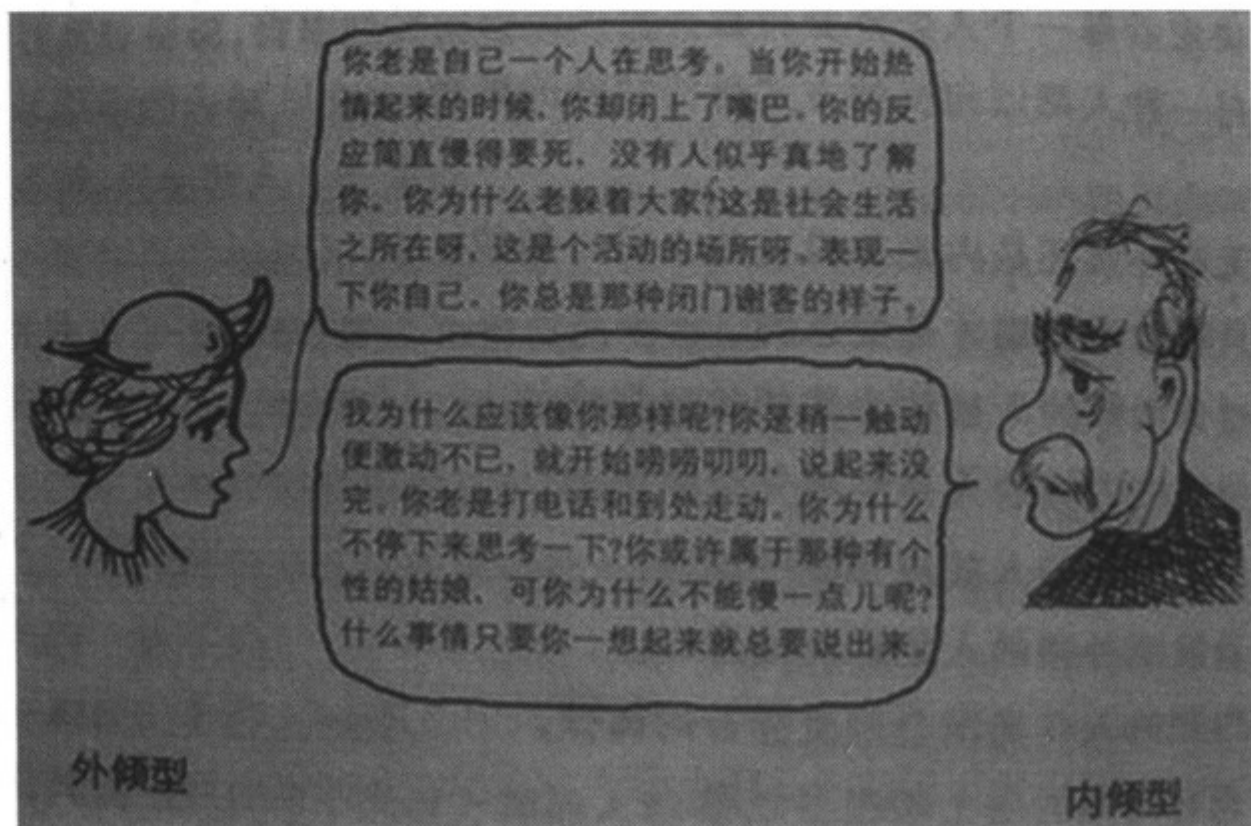 你老是自己一个人在思考。当你开始热
情起来的时候，你却闭上了嘴巴。你的反
应简直慢得要死，没有人似乎真地了解
你。你为什么老躲着大家？这是社会生活
之所在呀，这是个活动的场所呀。表现一
下你自己。你总是那种闭门谢客的样子。
我为什么应该像你那样呢?你是稍一触动
便激动不已，就开始唠唠叨叨，说起来没
完。你老是打电话和到处走动。你为什么
不停下来思考一下?你或许属于那种有个
性的姑娘，可你为什么不能慢一点儿呢?
什么事情只要你一想起来就总要说出来。
外倾型
内倾型